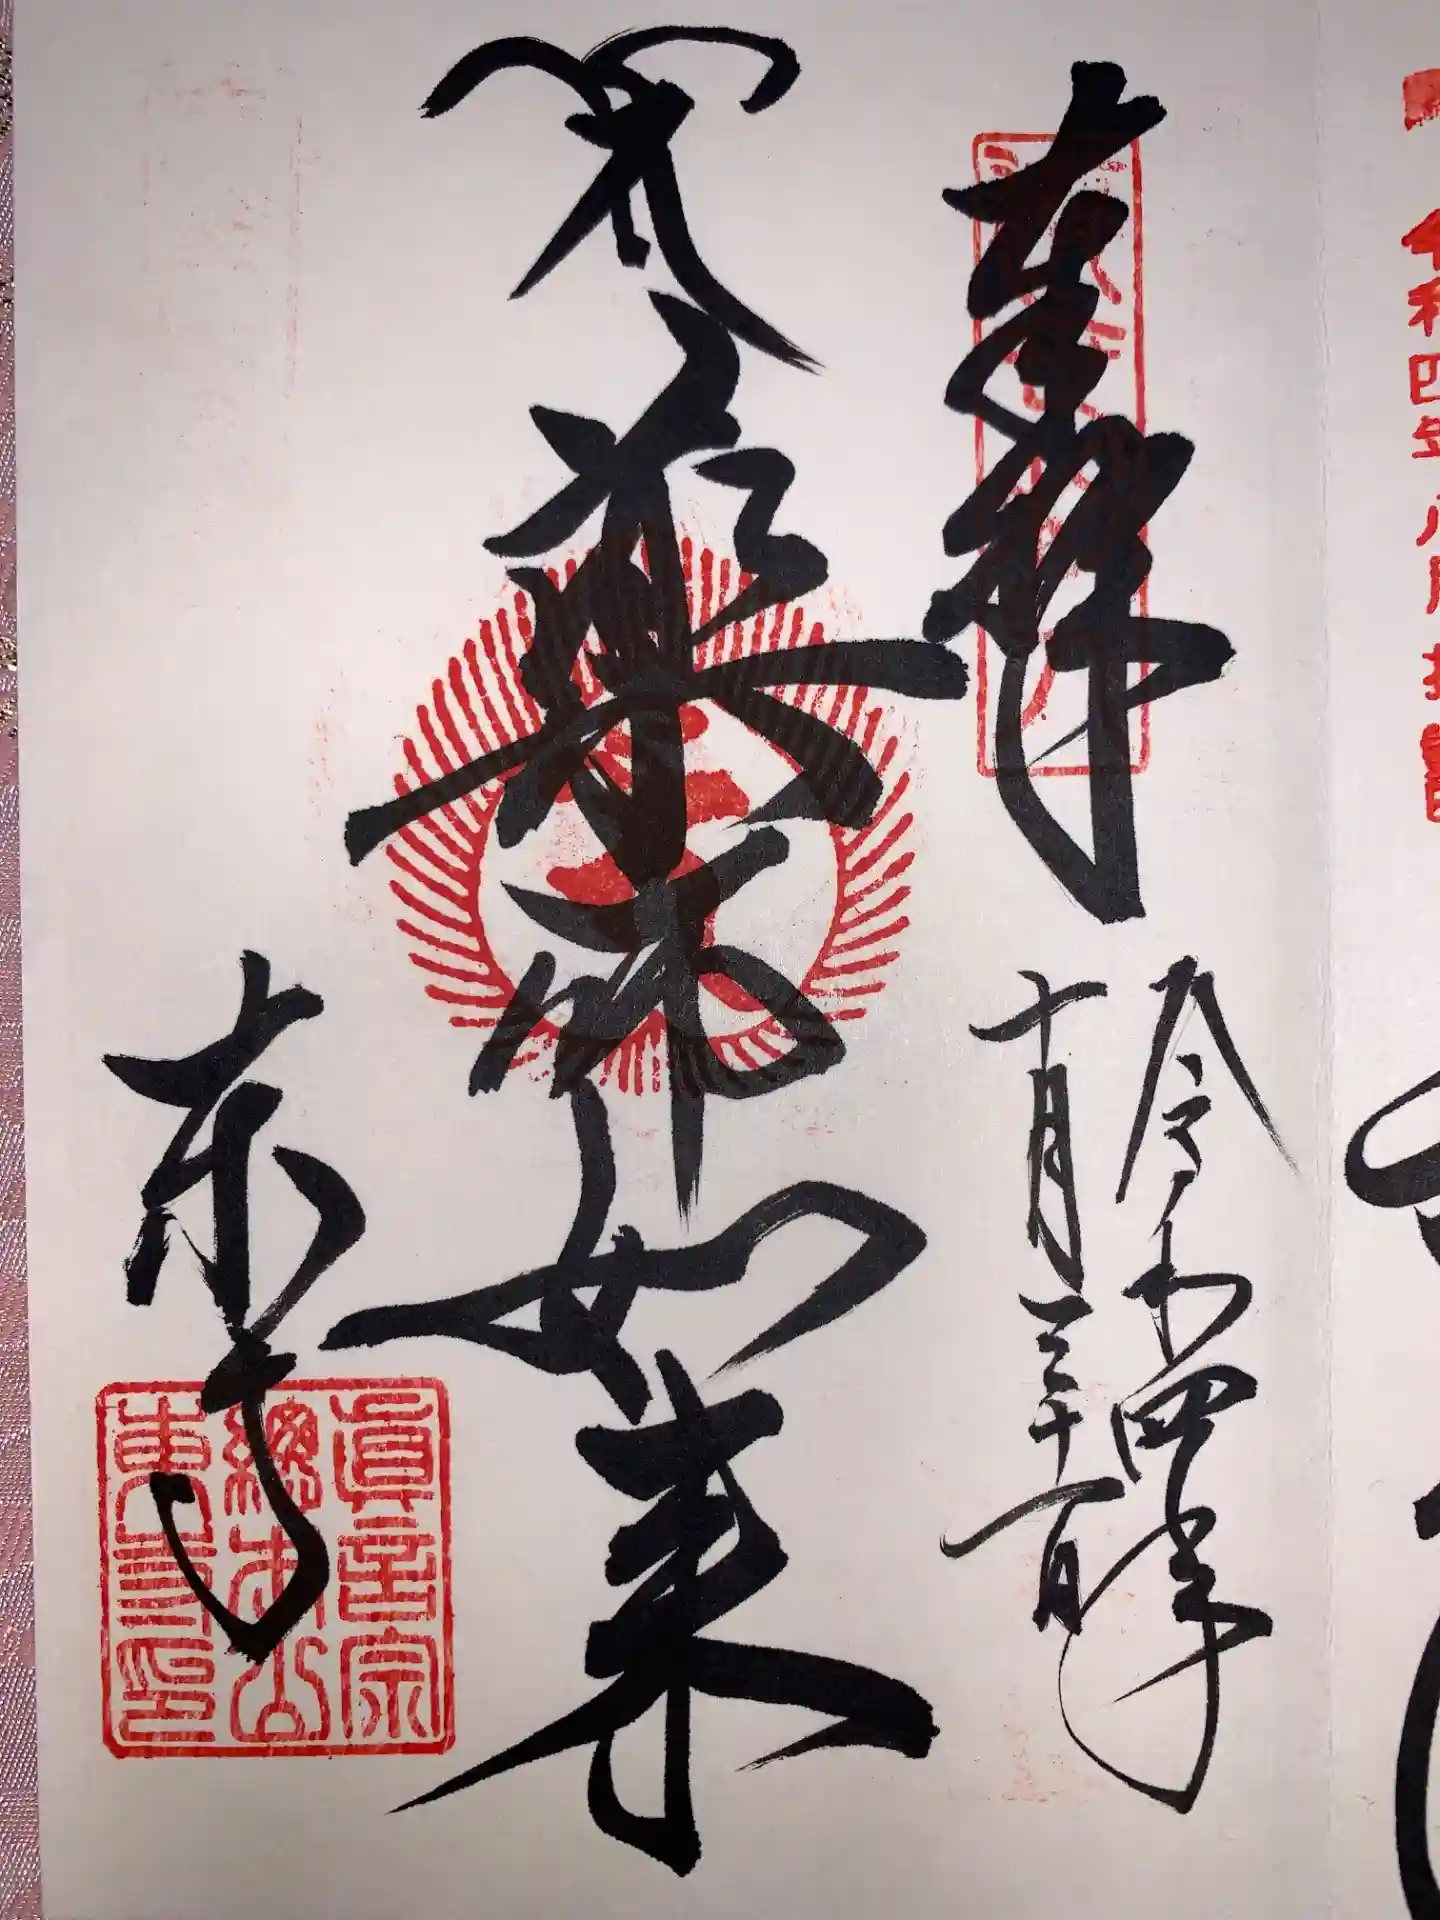 令和四年八月
奉拝
令和四年
十月三十一日
薬師如来
東寺
眞言宗
總本山
東寺印